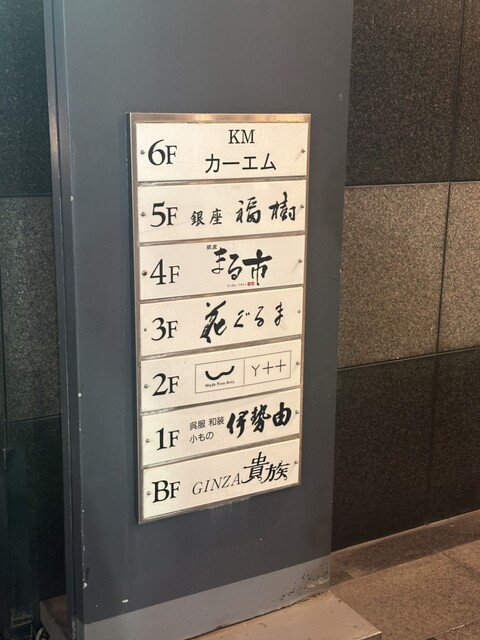 6F
KM
カーエム
5F
銀座 福樹
4F
銀座
まる市
3F
花ぐるま
2F
Wada Fine Arts
Y++
1F
呉服 和装
小もの
伊勢由
BF
GINZA貴族。